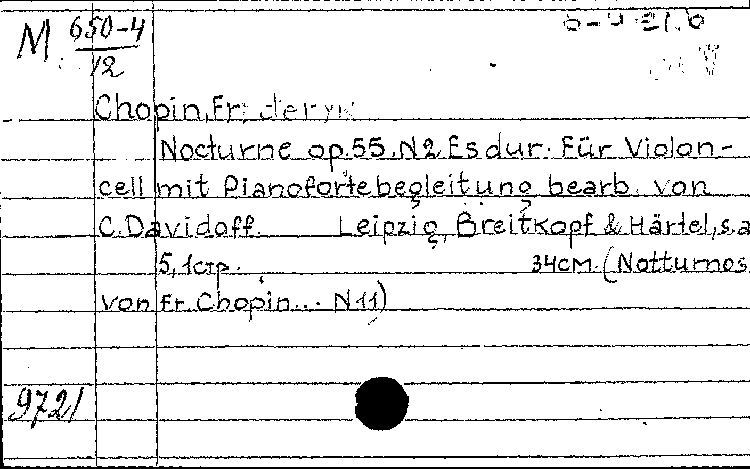 M 650-4
12
Chopin, Fryderyk
Nocturne op.55. N2 Es dur. Für Violon-
cell mit Pianofortebegleitung bearb. von
C. Davidoff. Leipzig, Breitkopf & Härtel, s.a
5,1стр. 34см. (Notturnos
von Fr. Chopin... N 11)
9721